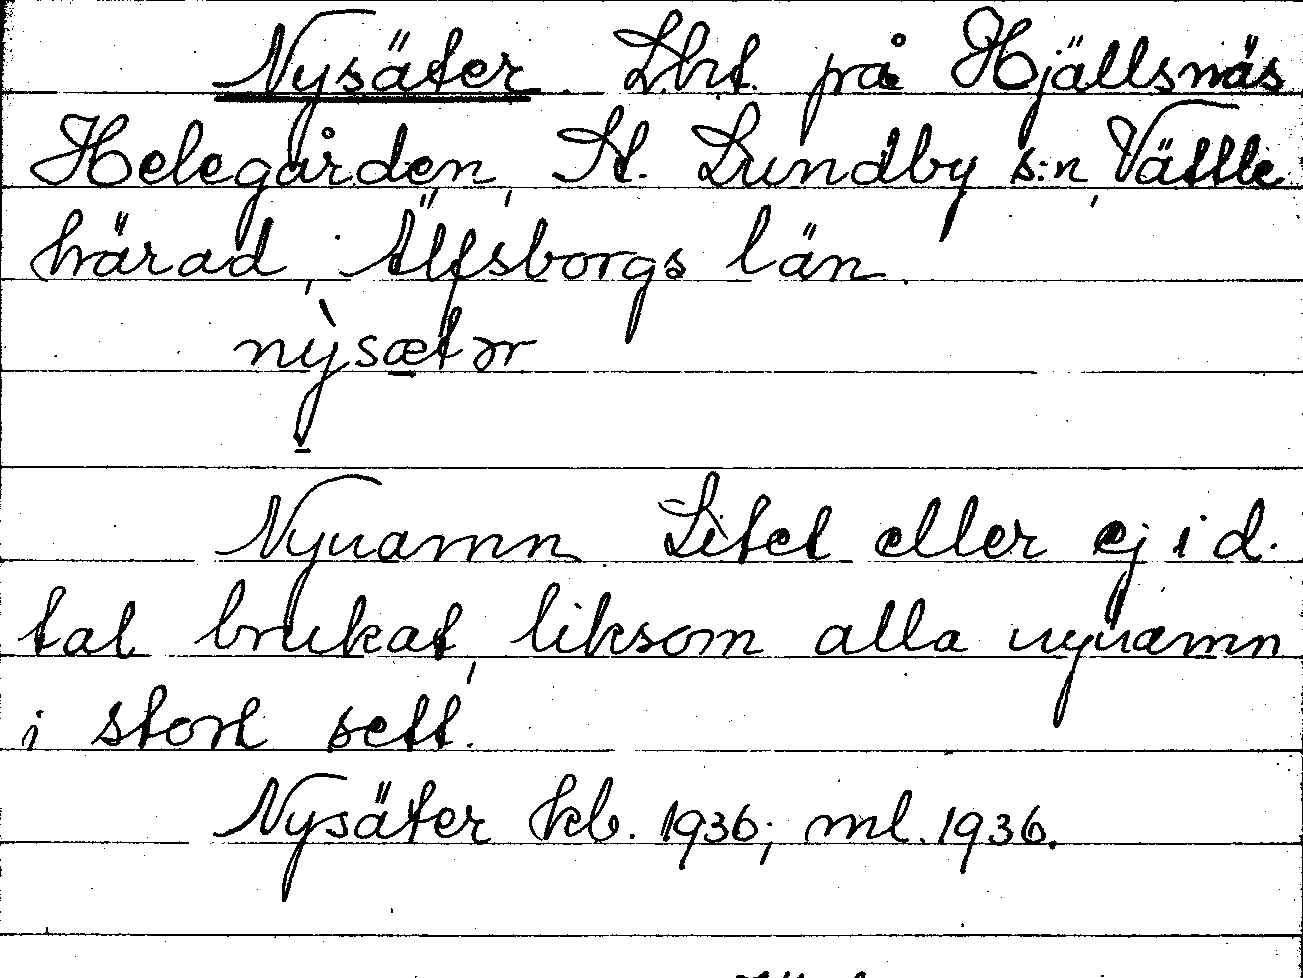 Nysäter. Lht. på Hjällsnäs
Helegården, St. Lundby s:n, Vättle
härad, Älfsborgs län.
nỳsætər
Nynamn. Litet eller ej i d.
tal brukat, liksom alla nynamn
i stort sett.
Nysäter kb. 1936; ml. 1936.